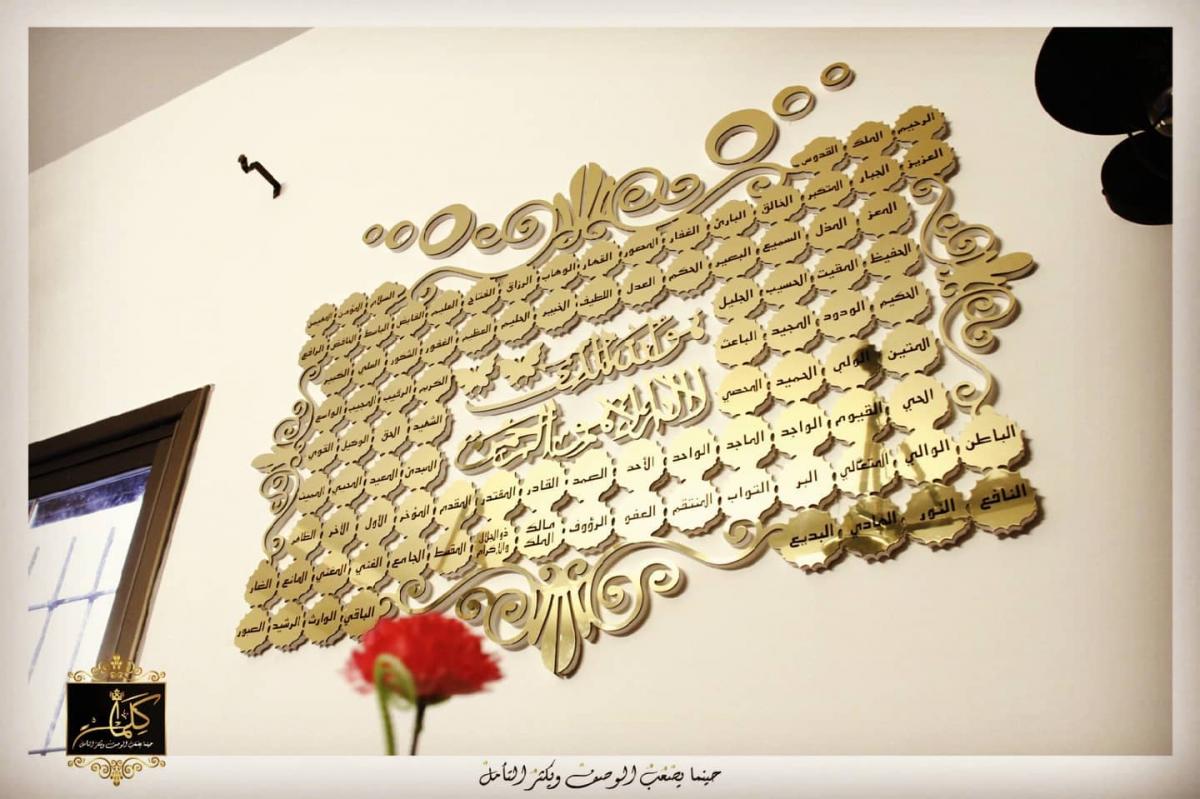 الرحيم الملك القدوس السلام المؤمن المهيمن
العزيز الجبار المتكبر الخالق البارئ الغفار المصور القهار الوهاب الرزاق الفتاح العليم القابض الباسط الخافض الرافع
المعز المذل السميع البصير الحكم العدل اللطيف الخبير الحليم العظيم الغفور الشكور العلي الكبير
الحفيظ المقيت الحسيب الجليل الكريم الرقيب المجيب الواسع
الحكيم الودود المجيد الباعث الشهيد الحق الوكيل القوي
المتين الولي الحميد المحصي المبدئ المعيد المحيي المميت
هو الله الذي
لا إله إلا هو الرحمن
الحي القيوم الواجد الماجد الواحد الأحد الصمد القادر المقتدر المقدم المؤخر الأول الآخر الظاهر
الباطن الوالي المتعالي البر التواب المنتقم العفو الرؤوف مالك الملك ذو الجلال والإكرام المقسط الجامع الغني المغني المانع الضار
النافع النور الهادي البديع الباقي الوارث الرشيد الصبور
كلمات
حينما يصعب الوصف ويكثر التأمل
حينما يصعب الوصف ويكثر التأمل